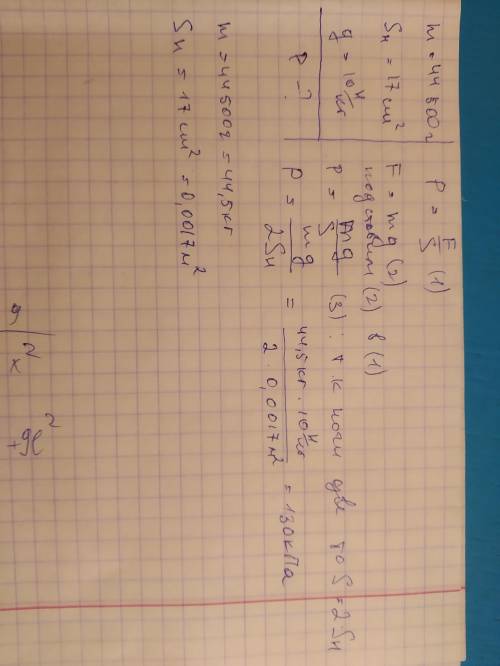 m = 44 500 г
Sн = 17 cm²
g = 10 Н/кг
P - ?
P = F/S (1)
F = mg (2)
подставим (2) в (1)
P = mg/S (3) : т.к ноги две то S = 2Sн
P = mg/2Sн = 44,5 кг · 10 Н/кг / 2 · 0,0017 м² = 130 кПа
m = 44500 г = 44,5 кг
Sн = 17 cm² = 0,0017 м²